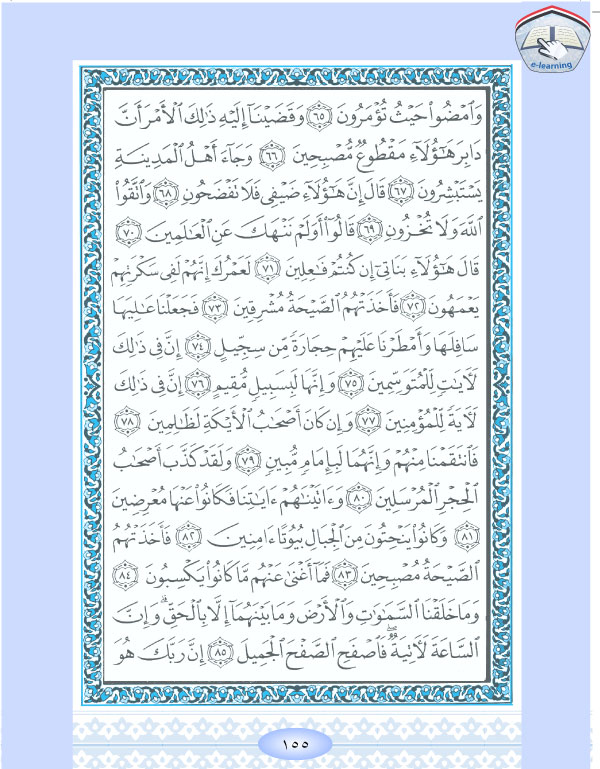 e-learning
وَٱمۡضُوا۟ حَيۡثُ تُؤۡمَرُونَ ٦٥ وَقَضَيۡنَآ إِلَيۡهِ ذَٰلِكَ ٱلۡأَمۡرَ أَنَّ
دَابِرَ هَٰٓؤُلَآءِ مَقۡطُوعٞ مُّصۡبِحِينَ ٦٦ وَجَآءَ أَهۡلُ ٱلۡمَدِينَةِ
يَسۡتَبۡشِرُونَ ٦٧ قَالَ إِنَّ هَٰٓؤُلَآءِ ضَيۡفِي فَلَا تَفۡضَحُونِ ٦٨ وَٱتَّقُوا۟
ٱللَّهَ وَلَا تُخۡزُونِ ٦٩ قَالُوٓا۟ أَوَلَمۡ نَنۡهَكَ عَنِ ٱلۡعَٰلَمِينَ ٧٠
قَالَ هَٰٓؤُلَآءِ بَنَاتِيٓ إِن كُنتُمۡ فَٰعِلِينَ ٧١ لَعَمۡرُكَ إِنَّهُمۡ لَفِي سَكۡرَتِهِمۡ
يَعۡمَهُونَ ٧٢ فَأَخَذَتۡهُمُ ٱلصَّيۡحَةُ مُشۡرِقِينَ ٧٣ فَجَعَلۡنَا عَٰلِيَهَا
سَافِلَهَا وَأَمۡطَرۡنَا عَلَيۡهِمۡ حِجَارَةٗ مِّن سِجِّيلٍ ٧٤ إِنَّ فِي ذَٰلِكَ
لَأٓيَٰتٖ لِّلۡمُتَوَسِّمِينَ ٧٥ وَإِنَّهَا لَبِسَبِيلٖ مُّقِيمٍ ٧٦ إِنَّ فِي ذَٰلِكَ
لَأٓيَةٗ لِّلۡمُؤۡمِنِينَ ٧٧ وَإِن كَانَ أَصۡحَٰبُ ٱلۡأَيۡكَةِ لَظَٰلِمِينَ ٧٨
فَٱنتَقَمۡنَا مِنۡهُمۡ وَإِنَّهُمَا لَبِإِمَامٖ مُّبِينٖ ٧٩ وَلَقَدۡ كَذَّبَ أَصۡحَٰبُ
ٱلۡحِجۡرِ ٱلۡمُرۡسَلِينَ ٨٠ وَءَاتَيۡنَٰهُمۡ ءَايَٰتِنَا فَكَانُوا۟ عَنۡهَا مُعۡرِضِينَ
٨١ وَكَانُوا۟ يَنۡحِتُونَ مِنَ ٱلۡجِبَالِ بُيُوتًا ءَامِنِينَ ٨٢ فَأَخَذَتۡهُمُ
ٱلصَّيۡحَةُ مُصۡبِحِينَ ٨٣ فَمَآ أَغۡنَىٰ عَنۡهُم مَّا كَانُوا۟ يَكۡسِبُونَ ٨٤
وَمَا خَلَقۡنَا ٱلسَّمَٰوَٰتِ وَٱلۡأَرۡضَ وَمَا بَيۡنَهُمَآ إِلَّا بِٱلۡحَقِّۗ وَإِنَّ
ٱلسَّاعَةَ لَأٓتِيَةٞۖ فَٱصۡفَحِ ٱلصَّفۡحَ ٱلۡجَمِيلَ ٨٥ إِنَّ رَبَّكَ هُوَ
١٥٥